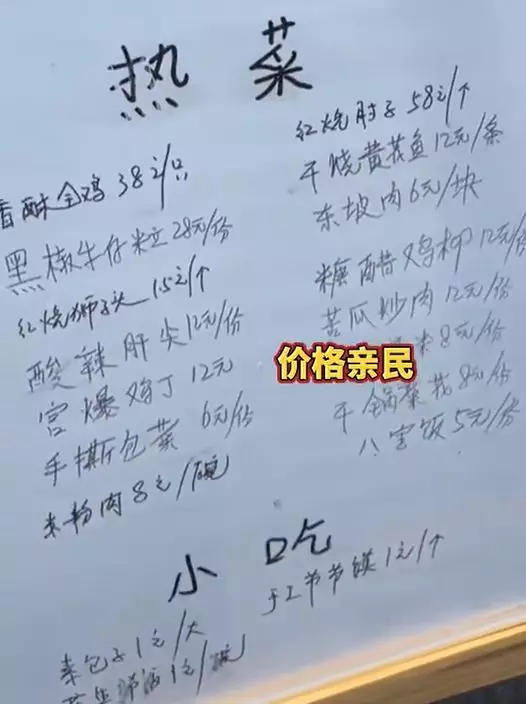 热 菜
香酥全鸡 38元/只
黑椒牛仔粒 28元/份
红烧狮子头 15元/个
酸辣肝尖 12元/份
宫爆鸡丁 12元
手撕包菜 6元/份
米粉肉 8元/碗
红烧肘子 58元/个
干烧黄花鱼 12元/条
东坡肉 6元/块
糖醋鸡柳 12元/份
苦瓜炒肉 12元/份
8元/份
干锅菜花 8元/份
八宝饭 5元/份
价格亲民
小 吃
手工节节馍 1元/个
素包子 1元/
1元/碗